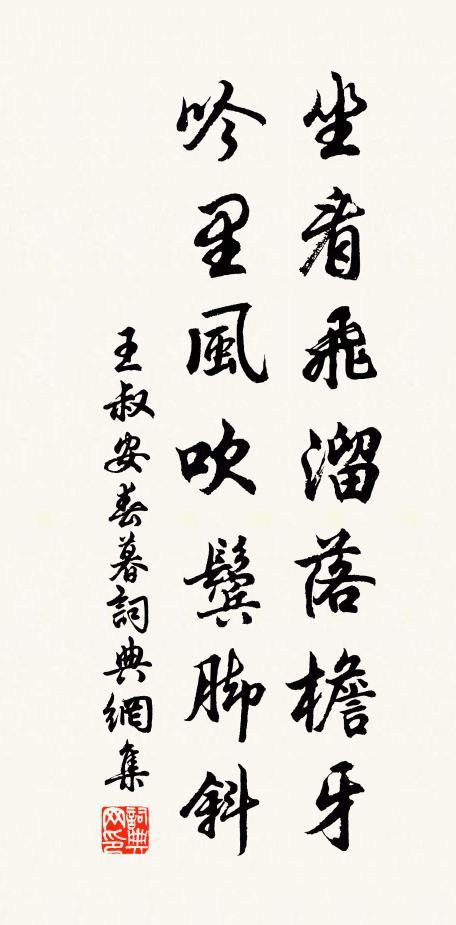 坐看飛溜落檐牙
吟里風吹鬢脚斜
王叔安春暮詞典網集
詞典网印